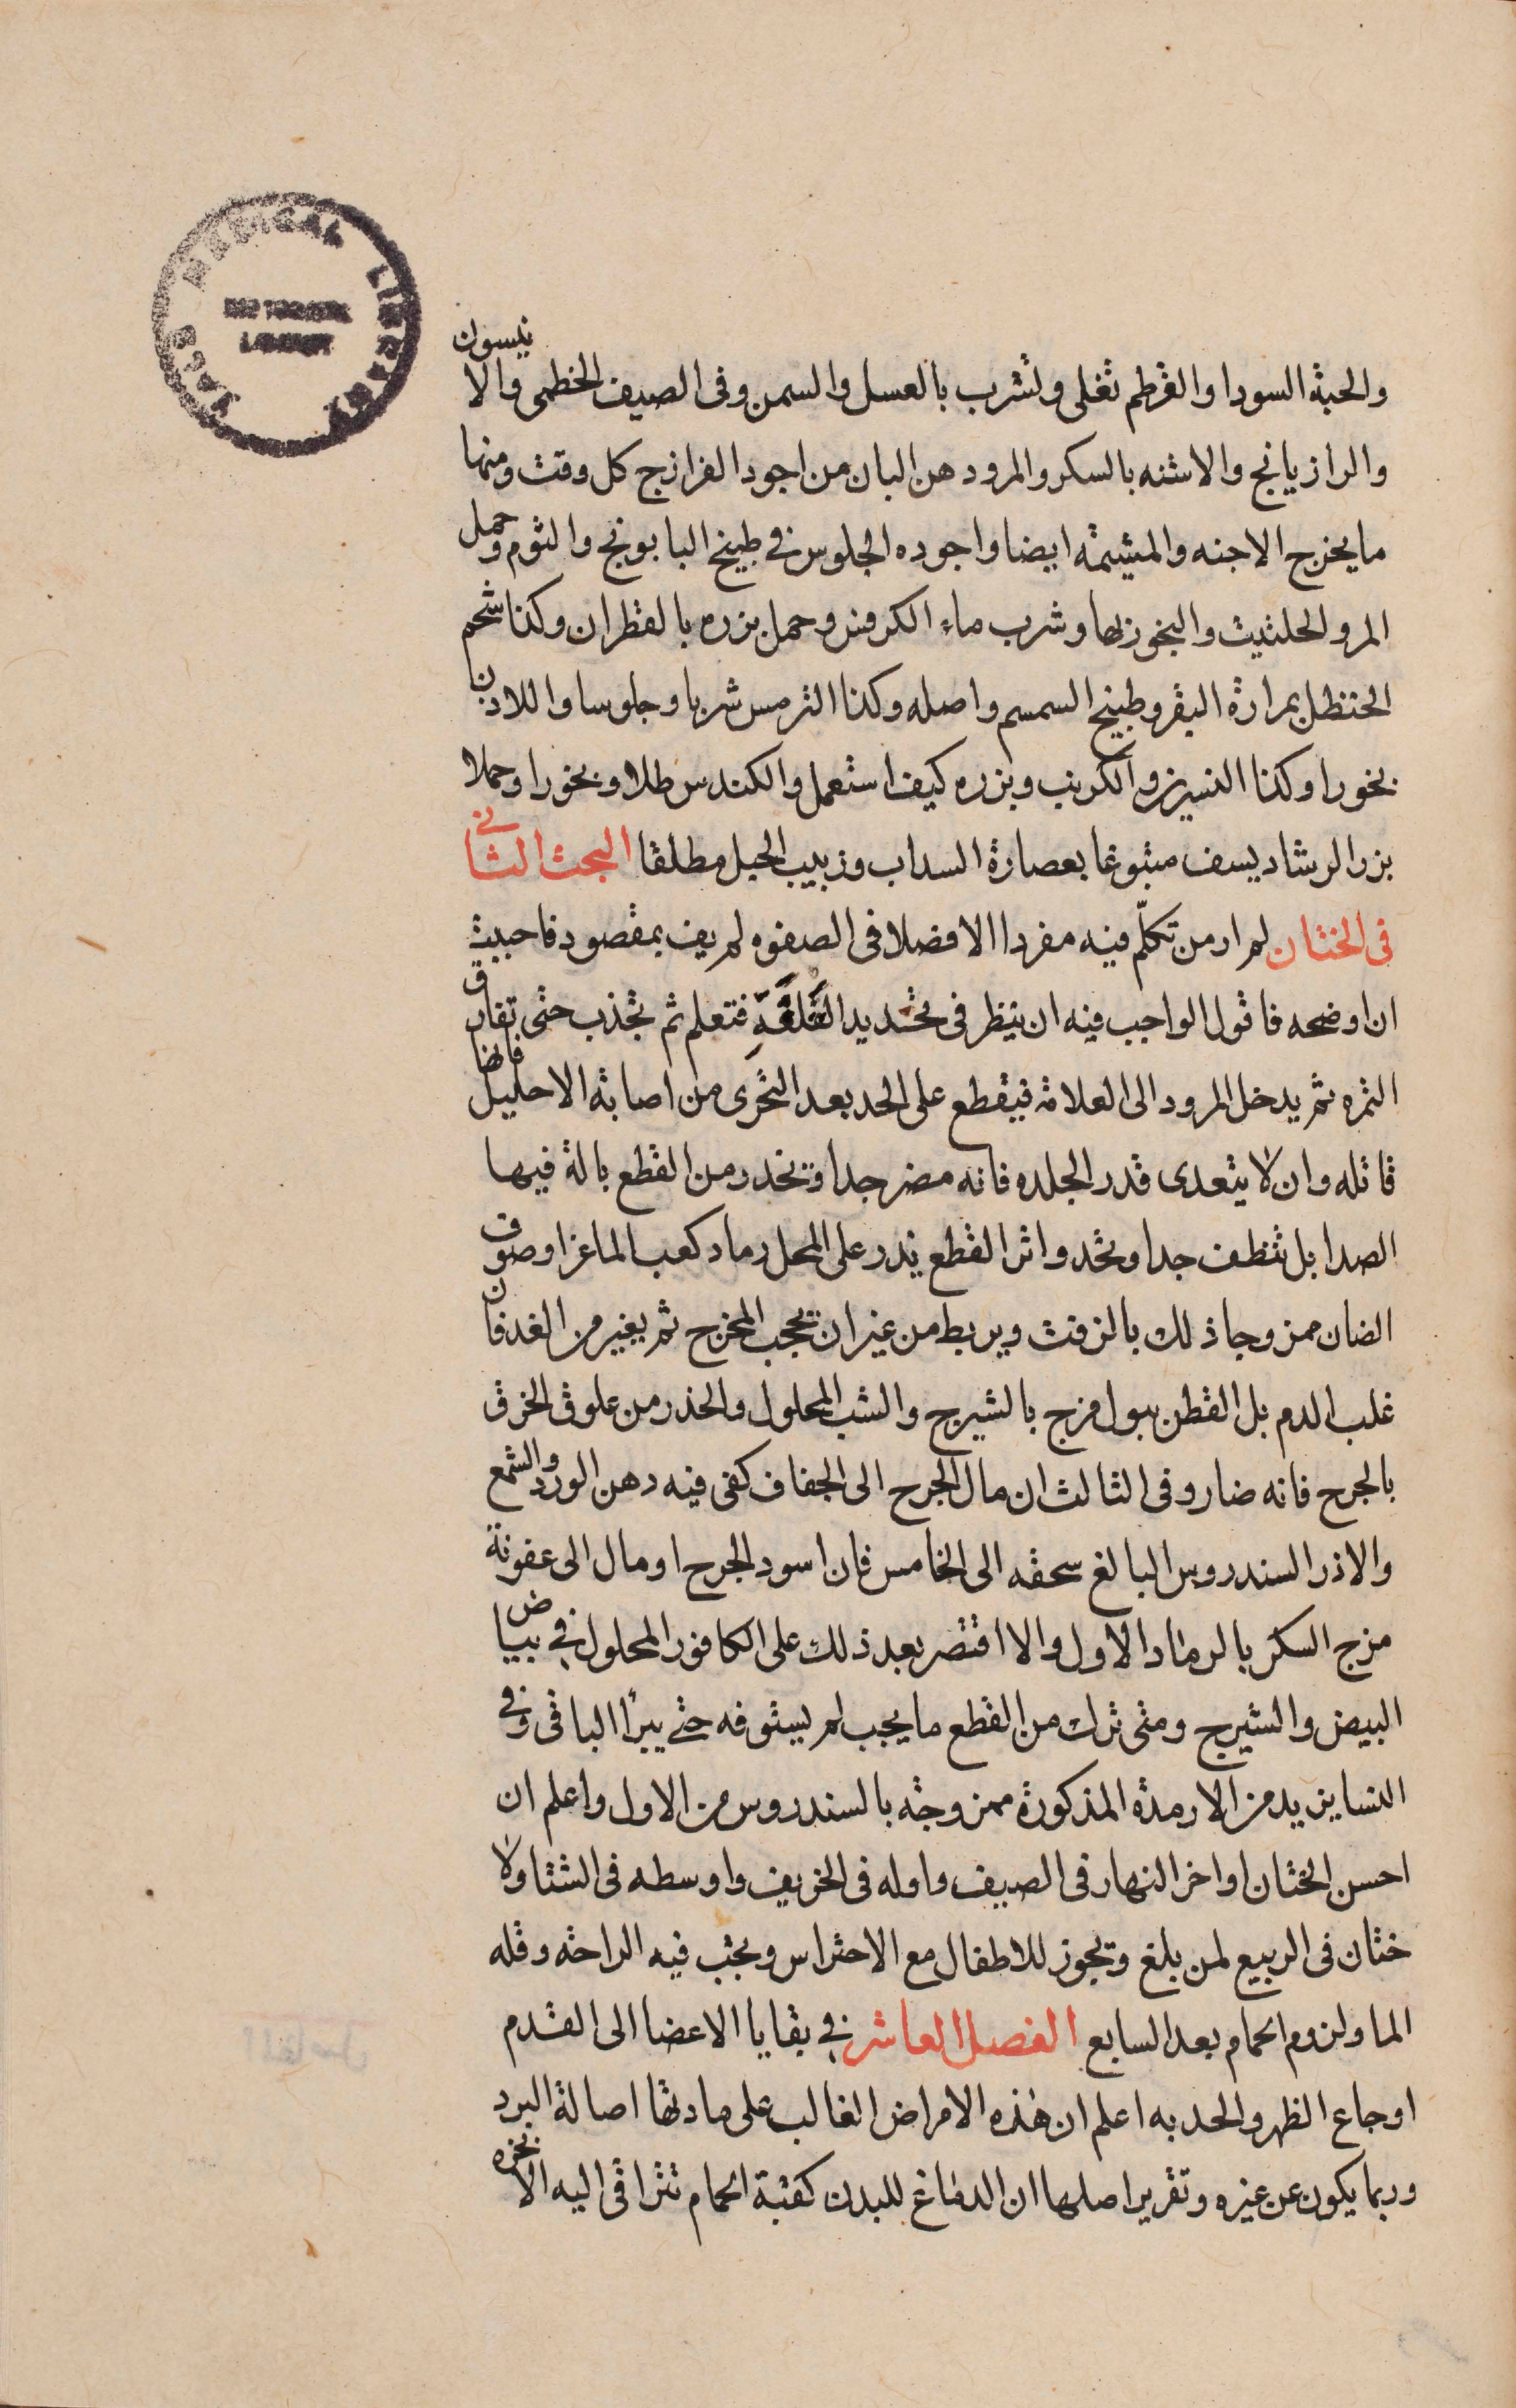 YALE MEDICAL LIBRARY
HISTORICAL
LIBRARY
والحبة السودا والقرطم تغلى وتشرب بالعسل والسمن وفى الصيف الخطمى والانيسون
والرازيانج والاشنه بالسكر والمرود هن البان من اجود الفرازج كل وقت ومنها
ما يخرج الاجنه والمشيمة ايضا واجوده الجلوس فى طبيخ البابونج والثوم وحمل
المر والحلتيت والبخور بها وشرب ماء الكرفس وحمل بزره بالقطران وكذا شحم
الحنظل بمرارة البقر وطبيخ السمسم واصله وكذا الترمس شربا وجلوسا واللادن
بخورا وكذا النسرين والكرنب وبزره كيف استعمل والكندس طلا وبخورا وحملا
بزر الرشاد يسف متبوعا بعصارة السداب وزبيب الجبل مطلقا البحث الثانى
فى الختان لم ار من تكلّم فيه مفردا الا فضلا فى الصفوه لم يف بمقصود فاحببت
ان اوضحه فاقول الواجب فيه ان ينظر فى تحديد القلفة فتعلم ثم تجذب حتى تفارق
الثمره ثم يدخل المرود الى العلامة فيقطع على الحد بعد التحرى من اصابة الاحليل فانها
قاتله وان لا يتعدى قدر الجلده فانه مضر جدا وتحذر من القطع بالة فيها
الصدا بل تنظف جدا وتحد واثر القطع يذر على المحل رماد كعب الماعز او صوف
الضان ممزوجا ذلك بالزفت ويربط من غير ان تحجب المخرج ثم يغير من الغد فان
غلب الدم بل القطن ببول مزج بالشيرج والشب المحلول والحذر من علوق الخرق
بالجرح فانه ضار وفى الثالث ان مال الجرح الى الجفاف كفى فيه دهن الورد والشمع
والا ذر السندروس البالغ سحقه الى الخامس فان اسود الجرح او مال الى عفونة
مزج السكر بالرماد الاول والا اقتصر بعد ذلك على الكافور المحلول فى بياض
البيض والشيرج ومتى ترك من القطع ما يجب لم يستوفه حتى يبرأ الباقى وفى
النسا يزيد من الارمدة المذكورة ممزوجة بالسندروس من الاول واعلم ان
احسن الختان اواخر النهار فى الصيف واوله فى الخريف واوسطه فى الشتا ولا
ختان فى الربيع لمن بلغ وتجوز للاطفال مع الاحتراس ويجب فيه الراحة وقله
الما ولزوم الحمام بعد السابع الفصل العاشر فى بقايا الاعضا الى القدم
اوجاع الظهر والحدبه اعلم ان هذه الامراض الغالب على مادتها اصالة البرد
وربما يكون عن غيره وتقرير اصلها ان الدماغ للبدن كقبة الحمام تتراقى اليه الابخره